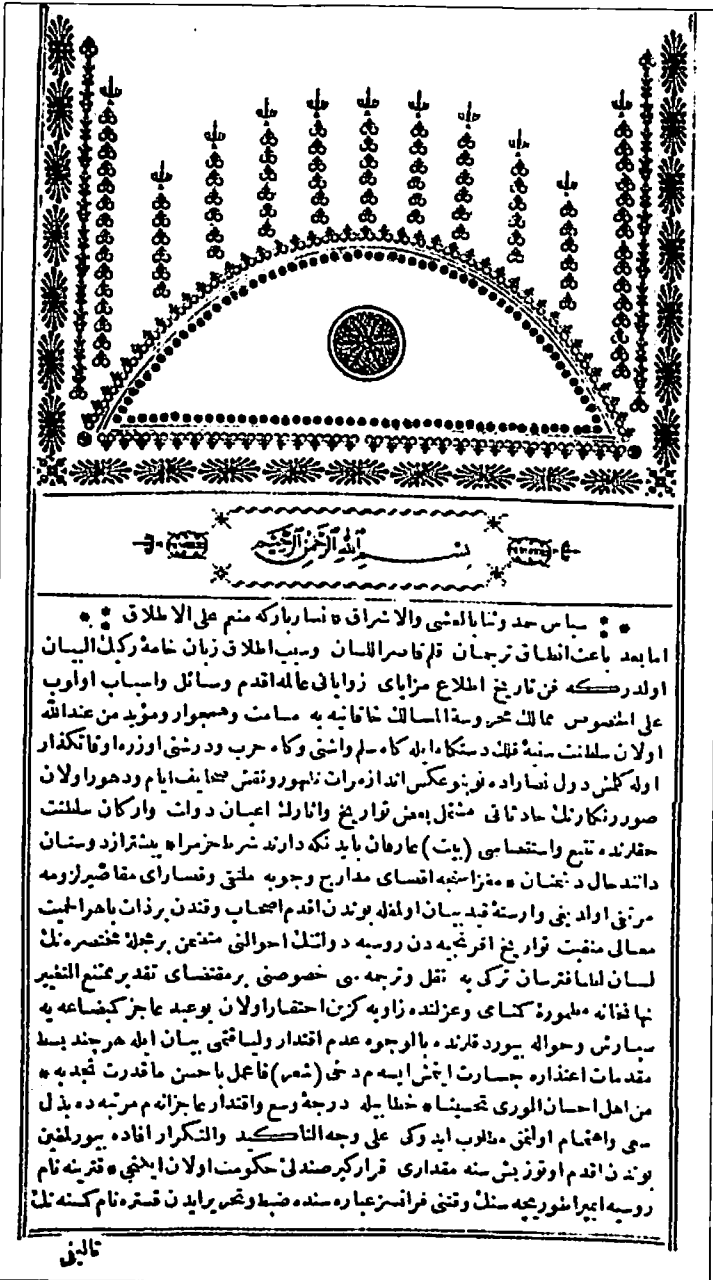 بسم الله الرحمن الرحيم
سپاس حمد وثنا بالعشى والاشراق * نسار باركه منعم على الاطلاق
اما بعد باعث انطاق ترجمان قلم قاصر اللسان وسبب اطلاق زبان خامهٔ ركيك البيان
اولدركه فن تاريخ اطلاع مزاياى زواياى عالمه اقدم وسائل واسباب اولوب
على الخصوص ممالك محروسة المسالك خاقانيه يه مسامت وهمجوار ومؤيد من عندالله
اولان سلطنت سنيهٔ فلك دستكاه ايله كاه سلم واشتى وكاه حرب ودرشتى اوزره اوقاتكذار
اوله كلمش دول نصاراده نوبنو عكس اندازهٔ مرات ظهور ونقش صحايف ايام ودهور اولان
صور رنكارنك حادثاتى مشتمل بعض تواريخ واثارك اعيان دولت واركان سلطنت
حقلرنده تتبع واستقصاسى (بيت) عارفان بايد نكه دارند شرط حزم را * پيشتر از دوستان
دانند حال دشمنان * مغزاسنجه اقصاى مدارج وجوبه ملتقى وقصاراى مقاصير لزومه
مرتقى اولديغى وارستهٔ قيد بيان اولمغله بوندن اقدم اصحاب وقتدن بر ذات باهر الحميت
معالى منقبت تواريخ افرنجيه دن روسيه دولتنك احوالنى متضمن بر مجلهٔ مختصره نك
لسان لطافترسان تركى يه نقل وترجمه سى خصوصنى بر مقتضاى تقدير ممتنع التغيير
نهانخانه مطمورهٔ كمنامى وعزلتده زاويه كزين احتقار اولان بو عبد عاجز كم بضاعه يه
سپارش وحواله بيوردقلرنده بالوجوه عدم اقتدار ولياقتمى بيان ايله هر چند بسط
مقدمات اعتذاره جسارت ايتمش ايسه م دخى (شعر) فاعمل باحسن ما قدرت تجد به *
من اهل احسان الورى تحسينا * خطابيله درجهٔ وسع واقتدار عاجزانه م مرتبه ده بذل
سعى واهتمام اولنمق مطلوب ايدوكى على وجه التأكيد والتكرار افاده بيورلمغين
بوندن اقدم اوتوز بش سنه مقدارى قراركير صندلئ حكومت اولان ايكنجى * قترينه نام
روسيه ايمپراطوريچه سنك وقتنى فرانسز عباره سنده ضبط وتحرير ايدن قستره نام كسنه نك
تاليفى